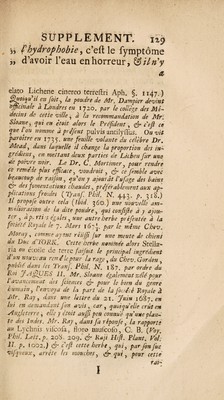 SUPPLEMENT. 129
„ l'hydrophobie, c'est le symptôme
„ d'avoir l'eau en horreur, & il n'y
a
elato Lichene cinereo terrestri Aph. §. 1147.)
Quoiqu'il en soit, la poudre de Mr. Dampier devint
officinale à Londres en 1720. par le collège des Mé-
decins de cette ville, à la recommandation de Mr.
Sloane, qui en étoit alors le Président, & c'est ce
que l'on nomme à présent pulvis antilyssus. On vit
paroître en 1735. une feuille volante du célèbre Dr.
Mead, dans laquelle il change la proportion des in-
grédiens, en mettant deux parties de Lichen sur une
de poivre noir. Le Dr. C. Mortimer, pour rendre
ce remède plus efficace, voudroit, & ce semble avec
beaucoup de raison, qu'on y ajoutât l'usage des bains
& des fomentations chaudes, préférablement aux ap-
plications froides (Trans. Phil. N. 443. p. 318.)
Il propose outre cela (Ibid. 360.) une nouvelle am-
mélioration de la dite poudre, qui consiste à y ajou-
ter, à parties égales, une autre herbe présentée à la
Société Royale le 7. Mars 1671. par le même Chev.
Moray, comme ayant réussi sur une meute de chiens
du Duc d'IORK. Cette herbe nommée alors Stella-
ria ou étoile de terre faisoit le principal ingrédient
d'un nouveau remède pour la rage, du Chev. Gordon,
publié dans les Trans. Phil. N. 187. par ordre du
Roi JAQUES II. Mr. Sloane également zélé pour
l'avancement des sciences & pour le bien du genre
humain, l'envoya de la part de la société Royale à
Mr. Ray, dans une lettre du 21. Juin 1687. en
lui en demandant son avis, car, quoiqu'elle crût en
Angleterre, elle y étoit aussi peu connue qu'une plan-
te des Indes. Mr. Ray, dans sa réponse, la rapporte
au Lychnis viscosa, flore muscoso, C. B. (Voy.
Phil. Lett. p. 208. 209. & Raji Hist. Plant. Vol.
II. p. 1002.) & c'est cette herbe, qui, par son suc
visqueux, arrête les mouches, & qui, pour cette
I rai-